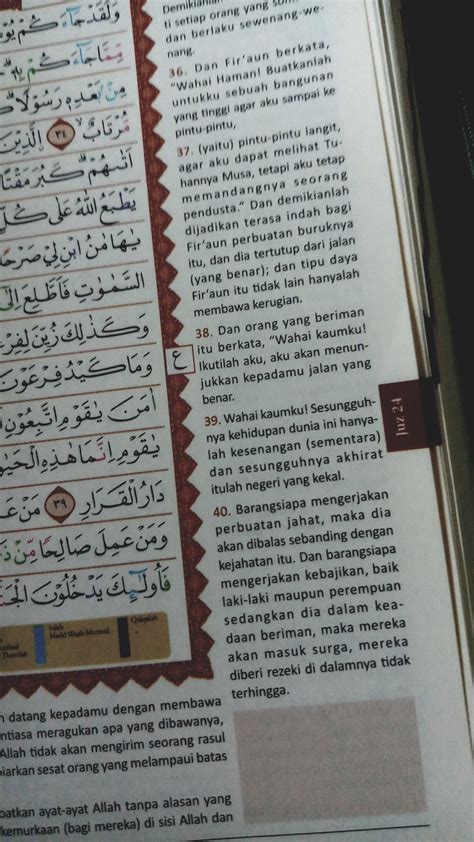 وَلَقَدْ جَاۤءَكُمْ يُو
مِّمَّا جَاۤءَكُمْ بِهٖ
مِنْۢ بَعْدِهٖ رَسُوْلًا
مُّرْتَابٌ ٣٤ الَّذِيْنَ
اَتٰىهُمْ كَبُرَ مَقْتًا
يَطْبَعُ اللّٰهُ عَلٰى كُلِّ
يٰهَامٰنُ ابْنِ لِيْ صَرْحًا
السَّمٰوٰتِ فَاَطَّلِعَ اِلٰٓى
وَكَذٰلِكَ زُيِّنَ لِفِرْعَ
وَمَا كَيْدُ فِرْعَوْنَ
اٰمَنَ يٰقَوْمِ اتَّبِعُوْنِ
يٰقَوْمِ اِنَّمَا هٰذِهِ الْحَيٰو
دَارُ الْقَرَارِ ٣٩ مَنْ عَ
وَمَنْ عَمِلَ صَالِحًا مِّنْ ذَ
فَاُولٰۤىِٕكَ يَدْخُلُوْنَ الْجَنَّ
ع
Demikianlah
ti setiap orang yang som
dan berlaku sewenang-we-
nang.
36. Dan Fir'aun berkata,
"Wahai Haman! Buatkanlah
untukku sebuah bangunan
yang tinggi agar aku sampai ke
pintu-pintu,
37. (yaitu) pintu-pintu langit,
agar aku dapat melihat Tu-
hannya Musa, tetapi aku tetap
memandangnya seorang
pendusta." Dan demikianlah
dijadikan terasa indah bagi
Fir'aun perbuatan buruknya
itu, dan dia tertutup dari jalan
(yang benar); dan tipu daya
Fir'aun itu tidak lain hanyalah
membawa kerugian.
38. Dan orang yang beriman
itu berkata, "Wahai kaumku!
Ikutilah aku, aku akan menun-
jukkan kepadamu jalan yang
benar.
39. Wahai kaumku! Sesungguh-
nya kehidupan dunia ini hanya-
lah kesenangan (sementara)
dan sesungguhnya akhirat
itulah negeri yang kekal.
40. Barangsiapa mengerjakan
perbuatan jahat, maka dia
akan dibalas sebanding dengan
kejahatan itu. Dan barangsiapa
mengerjakan kebajikan, baik
laki-laki maupun perempuan
sedangkan dia dalam kea-
daan beriman, maka mereka
akan masuk surga, mereka
diberi rezeki di dalamnya tidak
terhingga.
Juz 24
Iqlab
Mad Wajib Muttasil
Qalqalah
n datang kepadamu dengan membawa
ntiasa meragukan apa yang dibawanya,
Allah tidak akan mengirim seorang rasul
iarkan sesat orang yang melampaui batas
batkan ayat-ayat Allah tanpa alasan yang
kemurkaan (bagi mereka) di sisi Allah dan